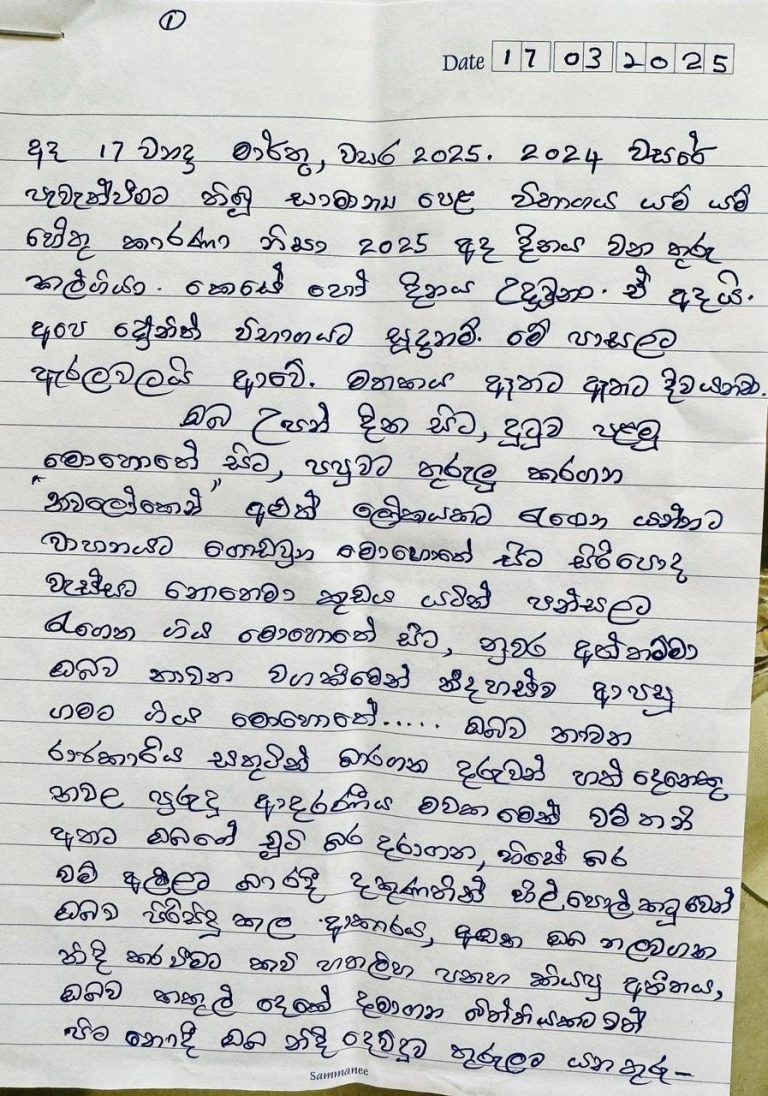 ①
Date 17 03 2025
අද 17 වනදා මාර්තු, වසර 2025. 2024 වසරේ
පැවැත්වීමට තිබූ සාමාන්‍ය පෙළ විභාගය යම් යම්
හේතු කාරණා නිසා 2025 අද දිනය වන තුරු
කල්ගියා. කෙසේ හෝ දිනය උදාවුනා. ඒ අදයි.
අපෙ දෝනිත් විභාගයට සූදානම්. මේ පාසලට
ඇරලවලයි ආවේ. මතකය ඈතට ඈතට දිවයනවා.
ඔබ උපන් දින සිට, දුටුව පළමු
මොහොතේ සිට, පපුවට තුරුලු කරගන
"නවලෝකෙන්" අළුත් ලෝකයකට රැගෙන යන්නට
වාහනයට ගොඩවුන මොහොතේ සිට සිරිපොද
වැස්සට නොතෙමා කුඩය යටින් පන්සලට
රැගෙන ගිය මොහොතේ සිට, නුවර අත්තම්මා
ඔබව නාවන වගකීමෙන් නිදහස්ව ආපසු
ගමට ගිය මොහොතේ..... ඔබව නාවන
රාජකාරිය සතුටින් බාරගන දරුවන් හත් දෙනෙකු
නවල පුරුදු ආදරණීය මවක මෙන් වම් තනි
අතට ඔබගේ චූටි බර දරාගන, හිසේ බර
වම් අල්ලට බාරදී දකුණතින් හිල් පොල් කටුවෙන්
ඔබව පිරිසිදු කල ආකාරය, අඬන ඔබ නලවගන
නිදි කරවීමට කවි හතලිහ පනහ කියපු අතීතය,
ඔබව කකුල් දෙකේ දමාගන බිත්තියකටවත්
පිට නොදී ඔබ නිදි දෙව්දුව තුරුලට යන තුරු-
Sammanee